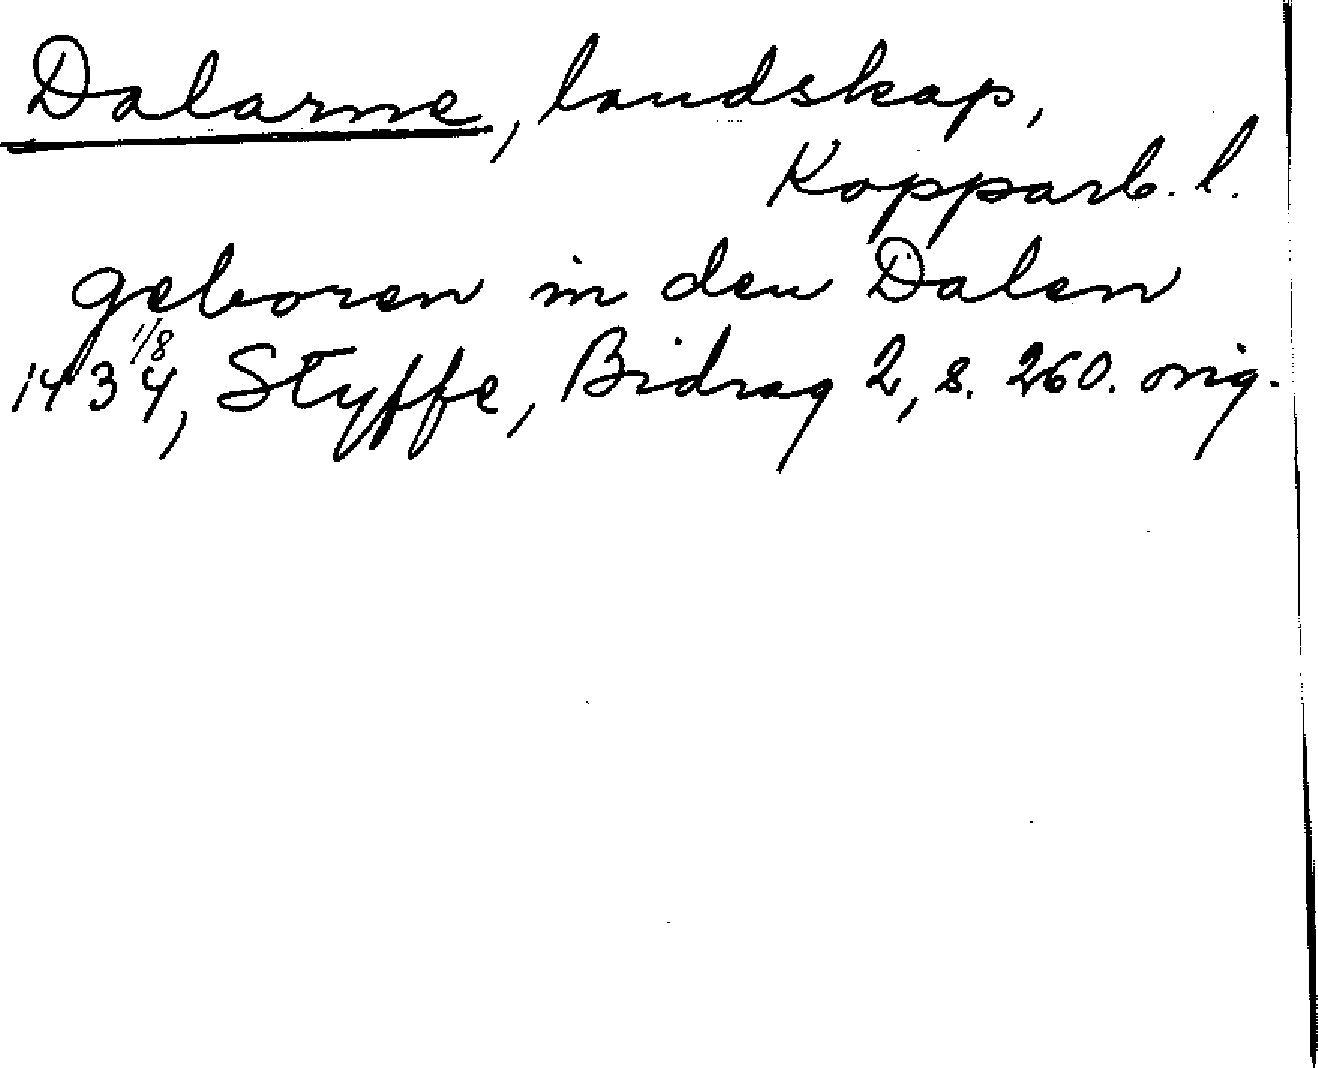 Dalarne, landskap,
Kopparb. l.
geboren in den Dalen
1434 1/8, Styffe, Bidrag 2, s. 260. orig.